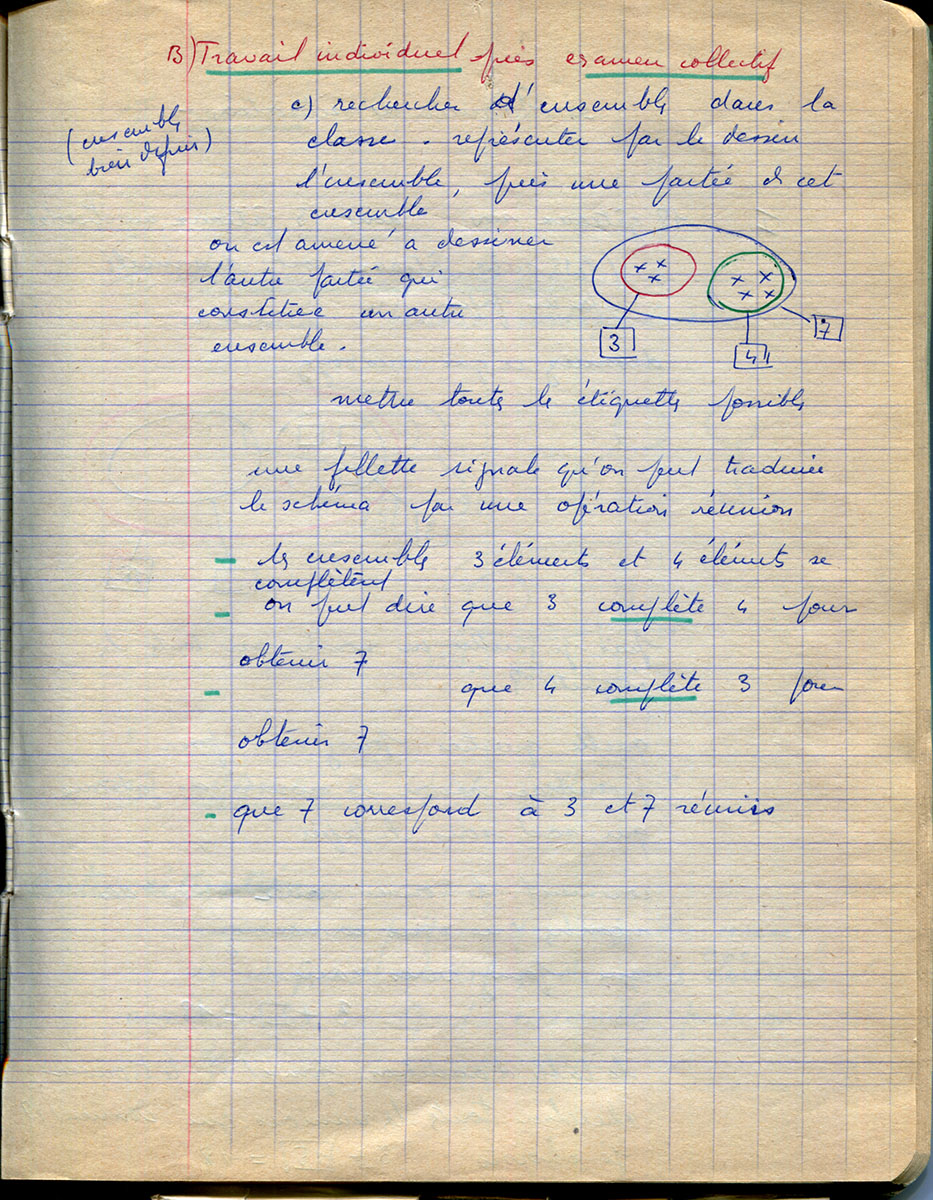 B) Travail individuel puis examen collectif
c) rechercher d'ensembles dans la
(ensembles
bien définis)
classe. représenter par le dessin
l'ensemble, puis une partie de cet
ensemble
on est amené a dessiner
l'autre partie qui
constitue un autre
ensemble.
3
4
7
mettre toutes les étiquettes possibles
une fillette signale qu'on peut traduire
le schéma par une opération réunion
- les ensembles 3 éléments et 4 éléments se
complètent
- on peut dire que 3 complète 4 pour
obtenir 7
- que 4 complète 3 pour
obtenir 7
- que 7 correspond à 3 et 7 réunis